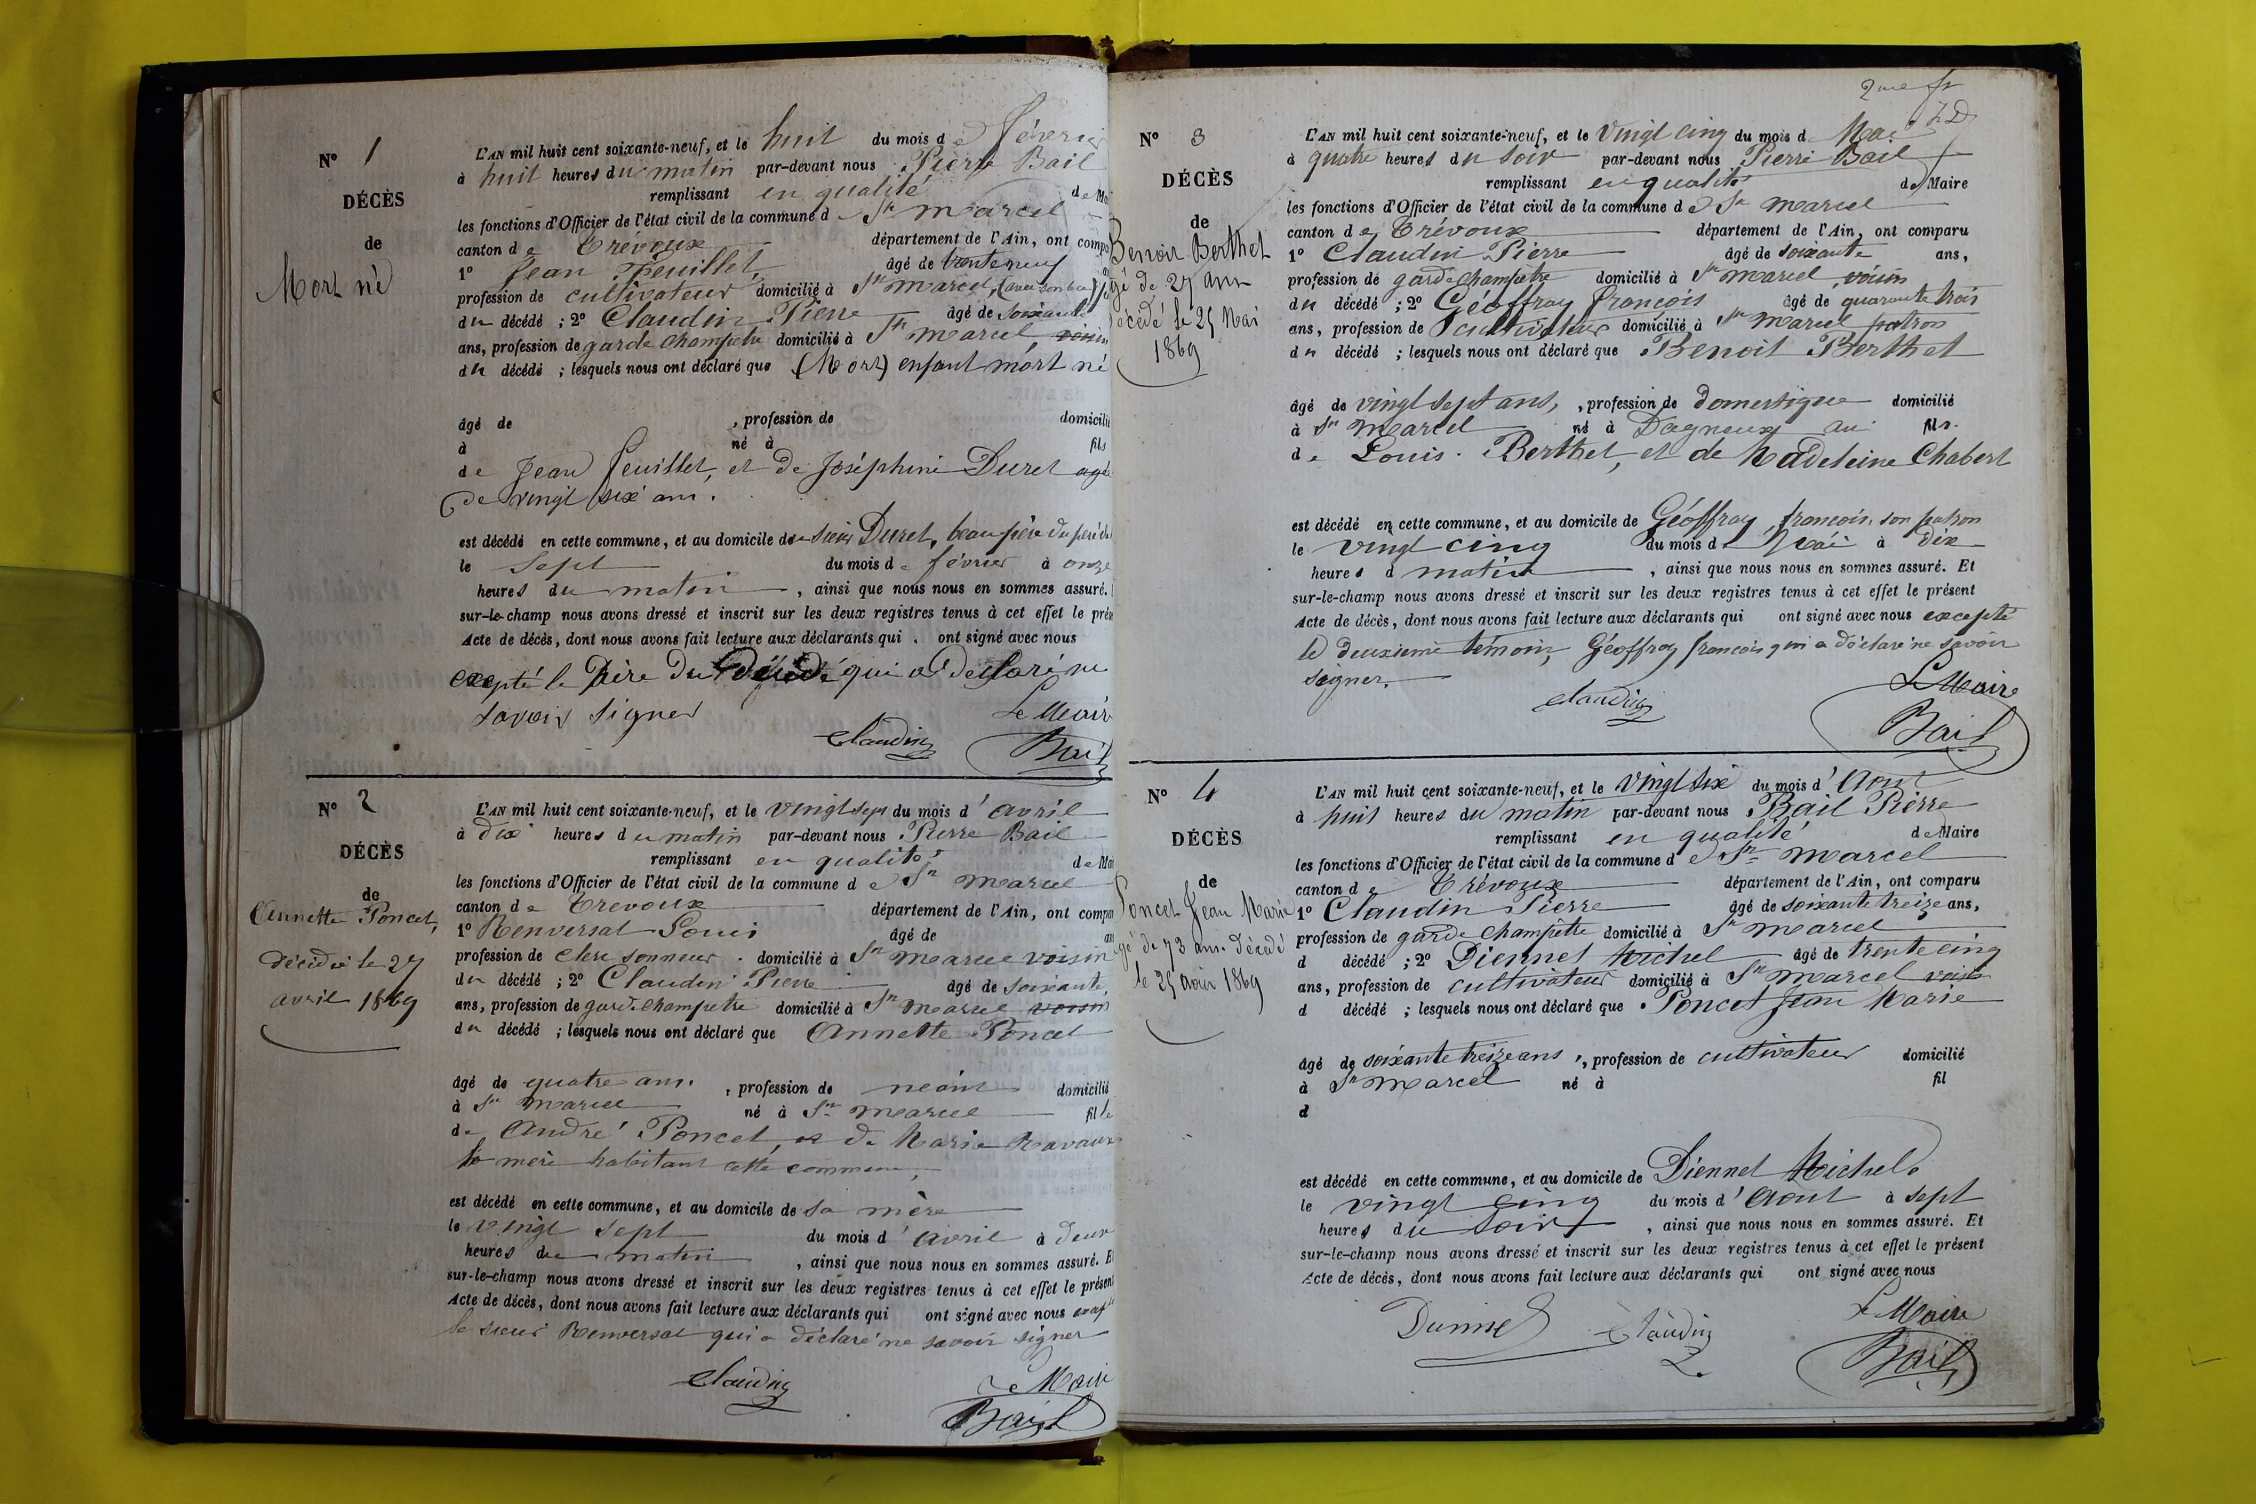 N° 1
DÉCÈS
de
Mort né
L'AN mil huit cent soixante-neuf, et le huit du mois de février
à huit heures du matin par-devant nous Pierre Bail
remplissant en qualité de Mai
les fonctions d'Officier de l'état civil de la commune de St marcel
canton de Trévoux département de l'Ain, ont compa
1° Jean Feuillet âgé de trente neuf
profession de cultivateur domicilié à St marcel,
du décédé ; 2° Claudin Pierre âgé de soixante
ans, profession de garde champetre domicilié à St marcel, voisin
du décédé ; lesquels nous ont déclaré que (Mort) enfant mort né
âgé de , profession de domicilié
à né à fils
de Jean feuillet, et de Joséphine Duret agée
de vingt six ans.
est décédé en cette commune, et au domicile de sieur Duret, beau père du père
le sept du mois de février à onze
heures du matin , ainsi que nous nous en sommes assuré.
sur-le-champ nous avons dressé et inscrit sur les deux registres tenus à cet effet le prése
Acte de décès, dont nous avons fait lecture aux déclarants qui ont signé avec nous
excepté le Père du décédé qui a déclaré ne
savoir signer
Le Maire
Claudin
Bail
N° 2
DÉCÈS
de
Annette Poncet,
décédée le 27
avril 1869
L'AN mil huit cent soixante-neuf, et le vingt sept du mois d'avril
à dix heures du matin par-devant nous Pierre Bail
remplissant en qualité de Mai
les fonctions d'Officier de l'état civil de la commune de St marcel
canton de Trevoux département de l'Ain, ont compar
1° Renversat Louis âgé de an
profession de clerc sonneur domicilié à St marcel voisin
du décédé ; 2° Claudin Pierre âgé de soixante,
ans, profession de garde champetre domicilié à St marcel voisin
du décédé ; lesquels nous ont déclaré que Annette Poncet
âgé de quatre ans. , profession de néant domicilié
à St marcel né à St marcel fille
de André Poncet, et de Marie Ravaux
sa mère habitant cette commune,
est décédé en cette commune, et au domicile de sa mère
le vingt sept du mois d'avril à deux
heures du matin , ainsi que nous nous en sommes assuré. E
sur-le-champ nous avons dressé et inscrit sur les deux registres tenus à cet effet le présent
Acte de décès, dont nous avons fait lecture aux déclarants qui ont signé avec nous excepté
le sieur Renversat qui a déclaré ne savoir signer
Claudin
Le Maire
Bail
2me
N° 3
DÉCÈS
de
Benoit Berthet
gé de 27 ans
écédé le 25 Mai
1869
L'AN mil huit cent soixante-neuf, et le vingt cinq du mois de Mai
à quatre heures du soir par-devant nous Pierre Bail
remplissant en qualité de Maire
les fonctions d'Officier de l'état civil de la commune de St marcel
canton de Trévoux département de l'Ain, ont comparu
1° Claudin Pierre âgé de soixante ans,
profession de garde champetre domicilié à St marcel voisin
du décédé ; 2° Géoffray françois âgé de quarante trois
ans, profession de cultivateur domicilié à St marcel patron
du décédé ; lesquels nous ont déclaré que Benoit Berthet
âgé de vingt sept ans, , profession de domestique domicilié
à St marcel né à Dagneux ain fils
de Louis Berthet, et de Madeleine Chabert
est décédé en cette commune, et au domicile de Géoffray, françois, son patron
le vingt cinq du mois de Mai à dix
heures d matin , ainsi que nous nous en sommes assuré. Et
sur-le-champ nous avons dressé et inscrit sur les deux registres tenus à cet effet le présent
Acte de décès, dont nous avons fait lecture aux déclarants qui ont signé avec nous excepté
le deuxieme témoin, Géoffray françois qui a déclaré ne savoir
signer.
Le Maire
Claudin
Bail
N° 4
DÉCÈS
de
Poncet Jean Marie
gé de 73 ans. décédé
le 25 aout 1869
L'AN mil huit cent soixante-neuf, et le vingt six du mois d'Aout
à huit heures du matin par-devant nous Bail Pierre
remplissant en qualité de Maire
les fonctions d'Officier de l'état civil de la commune de St marcel
canton de Trévoux département de l'Ain, ont comparu
1° Claudin Pierre âgé de soixante treize ans,
profession de garde champêtre domicilié à St marcel
d décédé ; 2° Diennet Michel âgé de trente cinq
ans, profession de cultivateur domicilié à St marcel voisin
d décédé ; lesquels nous ont déclaré que Poncet Jean Marie
âgé de soixante treize ans , profession de cultivateur domicilié
à St marcel né à fil
d
est décédé en cette commune, et au domicile de Diennet Michel
le vingt cinq du mois d'Aout à sept
heures du soir , ainsi que nous nous en sommes assuré. Et
sur-le-champ nous avons dressé et inscrit sur les deux registres tenus à cet effet le présent
Acte de décès, dont nous avons fait lecture aux déclarants qui ont signé avec nous
Le Maire
Claudin
Bail